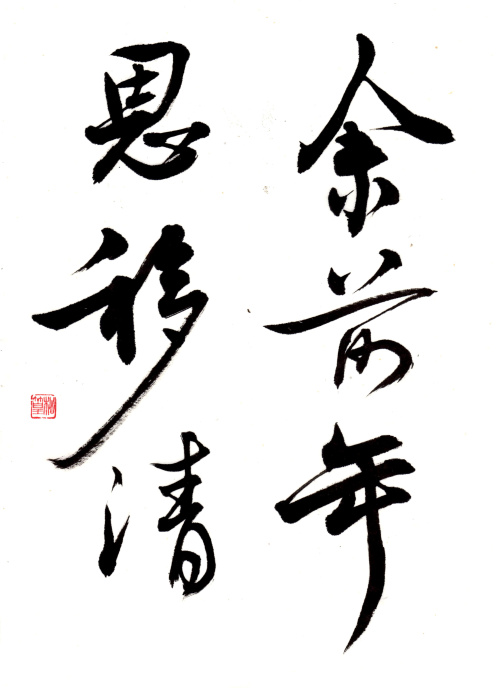 余前年
恩移清